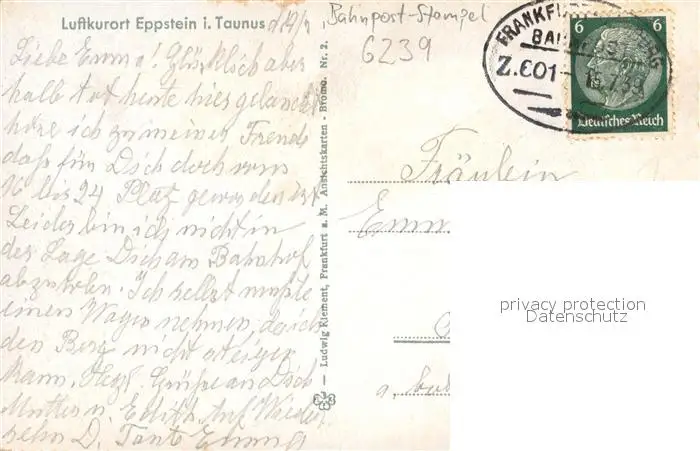 Luftkurort Eppstein i. Taunus d. 14/7
Liebe Emma! Glücklich aber
halb tot heute hier gelandet
höre ich zu meiner Freude
daß für Dich doch vom
16 bis 24 Platz geworden ist
Leider bin ich nicht in
der Lage Dich am Bahnhof
abzuholen. Ich selbst mußte
einen Wagen nehmen, da ich
den Berg nicht steigen
kann. Herzl. Grüße an Dich
Mutter u. Edith. Auf Wieder
sehn D. Tante Emma
Ludwig Klement, Frankfurt a. M. Ansichtskarten - Bromo. Nr. 2.
Bahnpost-Stempel
6239
Z.601
15.7.39
6 6
Deutsches Reich
Fräulein
privacy protection
Datenschutz